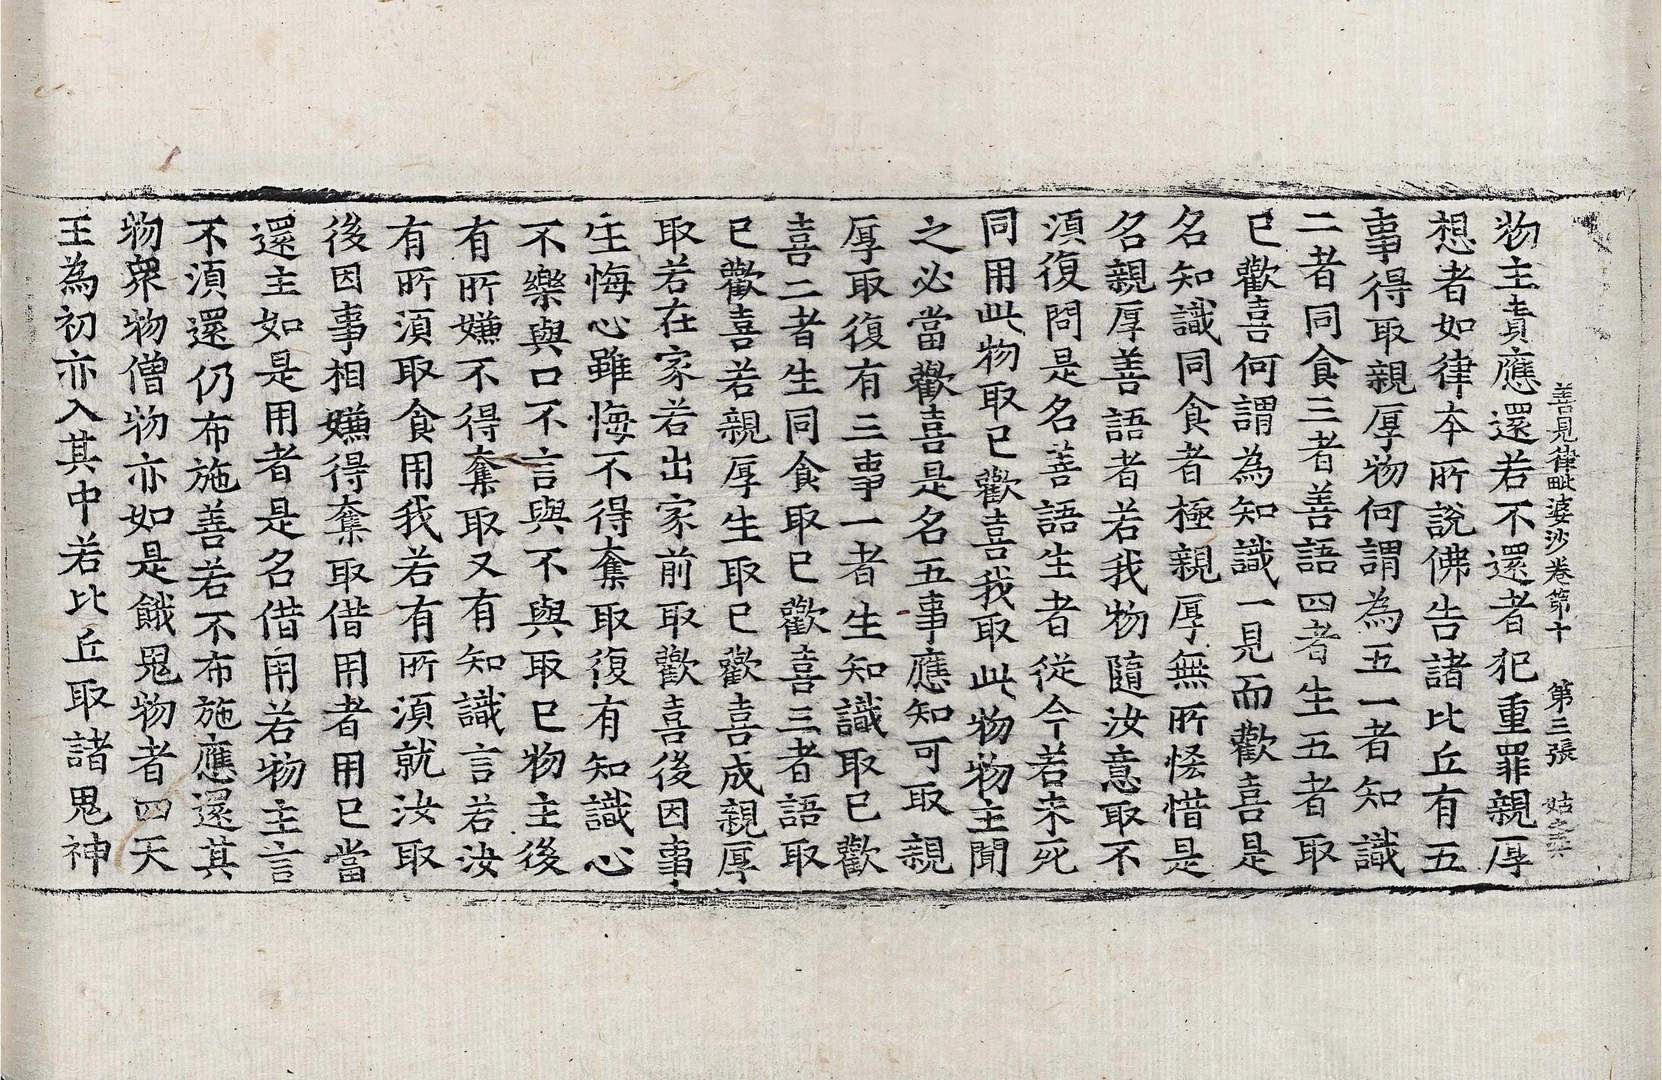 善見律毗婆沙卷第十　第三張　姑
物主責應還若不還者犯重罪親厚
想者如律本所說佛告諸比丘有五
事得取親厚物何謂為五一者知識
二者同食三者善語四者生五者取
已歡喜何謂為知識一見而歡喜是
名知識同食者極親厚無所恡惜是
名親厚善語者若我物隨汝意取不
湏復問是名善語生者從今若未死
同用此物取已歡喜我取此物物主聞
之必當歡喜是名五事應知可取親
厚取復有三事一者生知識取已歡
喜二者生同食取已歡喜三者語取
已歡喜若親厚生取已歡喜成親厚
取若在家若出家前取歡喜後因事
生悔心雖悔不得奪取復有知識心
不樂與口不言與不與取已物主後
有所嫌不得奪取又有知識言若汝
有所湏取食用我若有所湏就汝取
後因事相嫌得奪取借用者用已當
還主如是用者是名借用若物主言
不湏還仍布施善若不布施應還其
物衆物僧物亦如是餓鬼物者四天
王為初亦入其中若比丘取諸鬼神